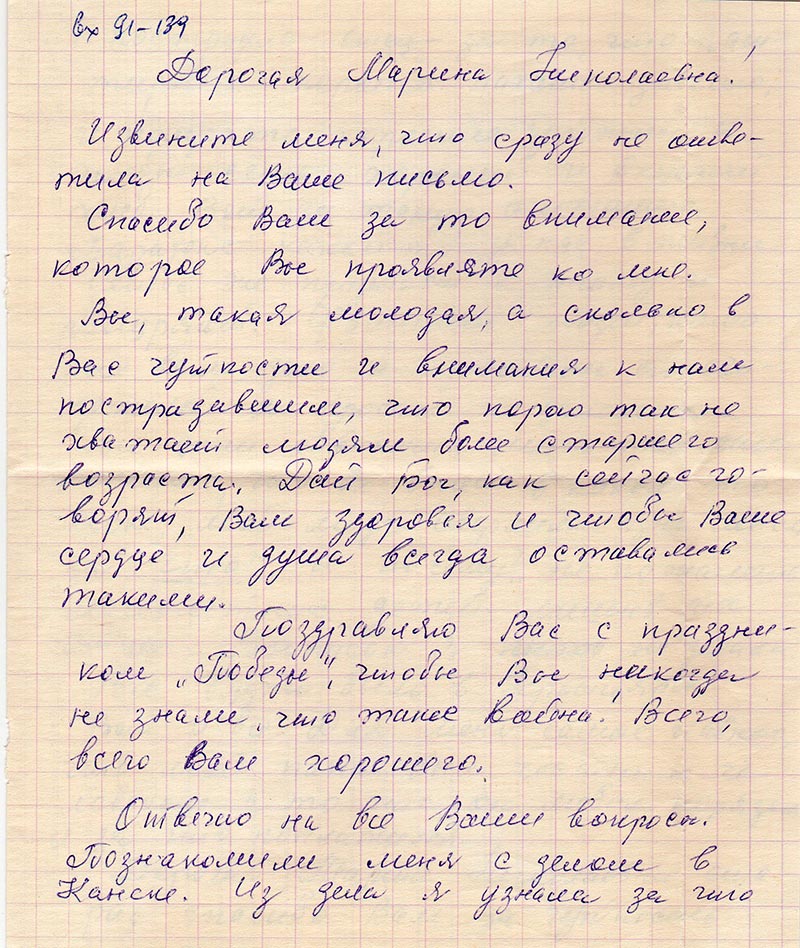 вх 91-139
Дорогая Марина Николаевна!
Извините меня, что сразу не отве-
тила на Ваше письмо.
Спасибо Вам за то внимание,
которое Вы проявляте ко мне.
Вы, такая молодая, а сколько в
Вас чуткости и внимания к нам
пострадавшим, что порою так не
хватает людям более старшего
возраста. Дай Бог, как сейчас го-
ворят, Вам здоровья и чтобы Ваше
сердце и душа всегда оставались
такими.
Поздравляю Вас с праздни-
ком „Победы", чтобы Вы никогда
не знали, что такое война! Всего,
всего Вам хорошего.
Отвечаю на все Ваши вопросы.
Познакомили меня с делом в
Канске. Из дела я узнала за что